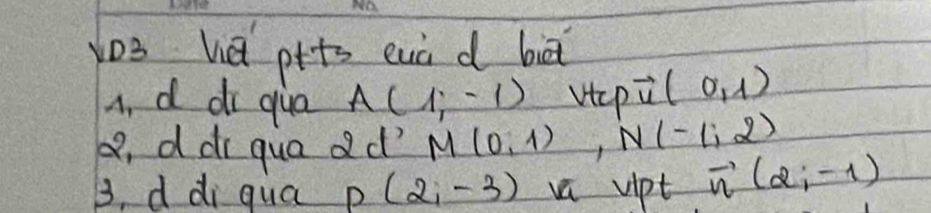 VD3 Viết ptts của d biết
1, d đi qua A(1;-1) vtcp u⃗(0,1)
2, d đi qua 2đ' M(0;1), N(-1;2)
3, d đi qua P(2;-3) và vtpt n⃗(2;-1)